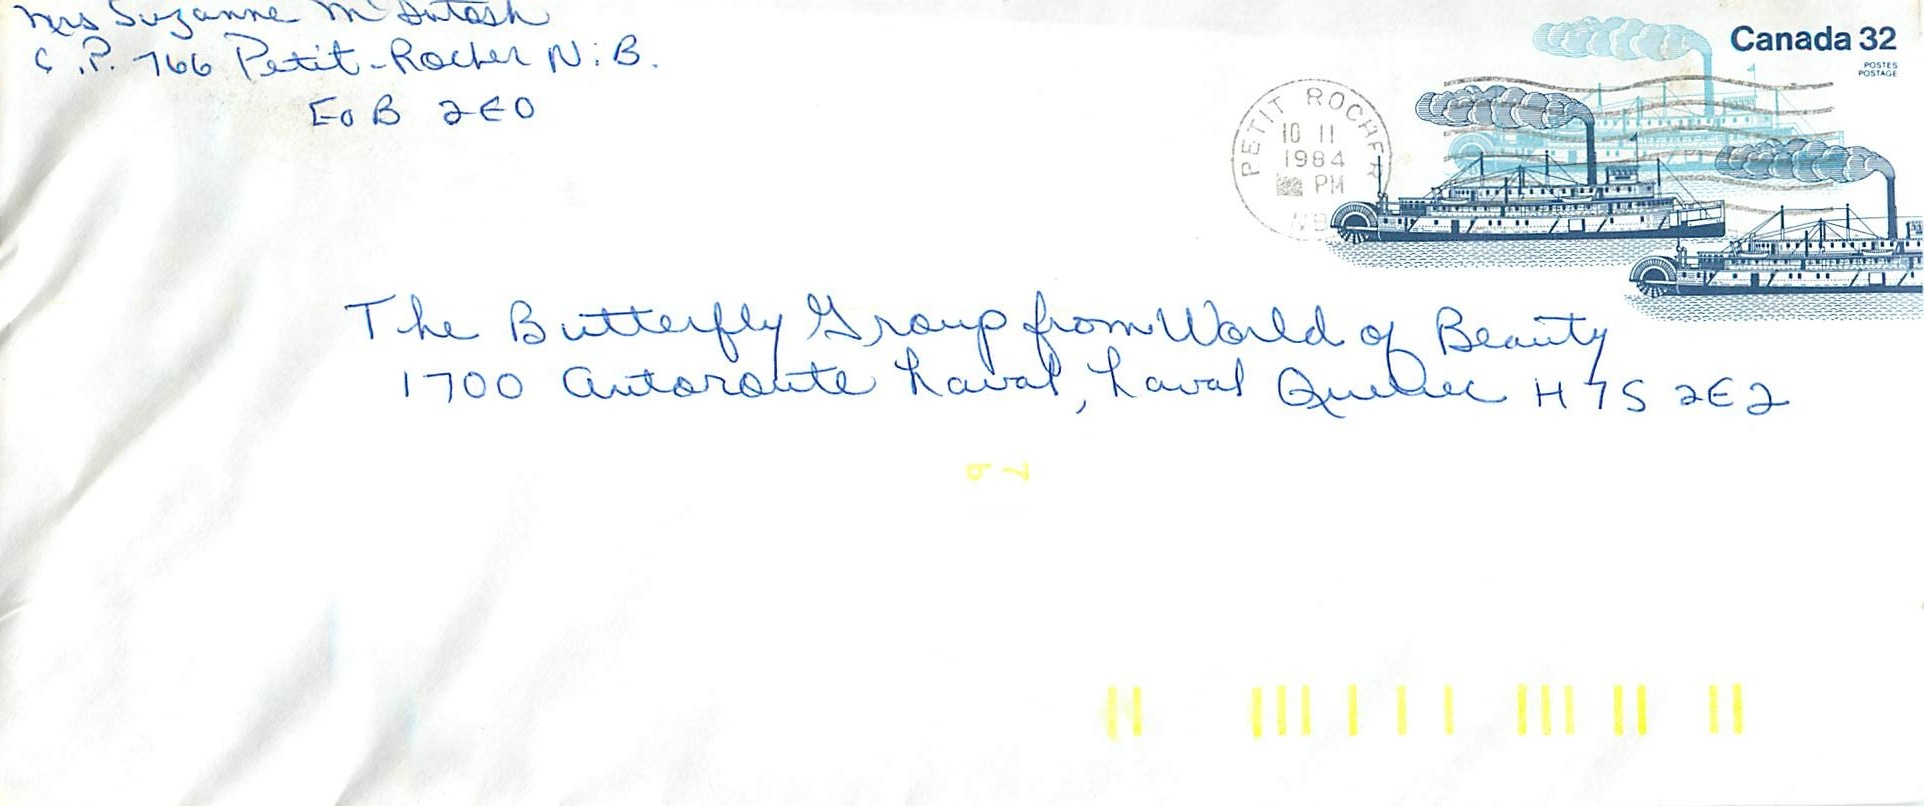 Mrs Suzanne McIntosh
C.P. 766 Petit-Rocher N.B.
E0B 2E0
Canada 32
POSTES
POSTAGE
PETIT ROCHER
10 11
1984
PM
NB
The Butterfly Group from World of Beauty
1700 Autoroute Laval, Laval Quebec H7S 2E2